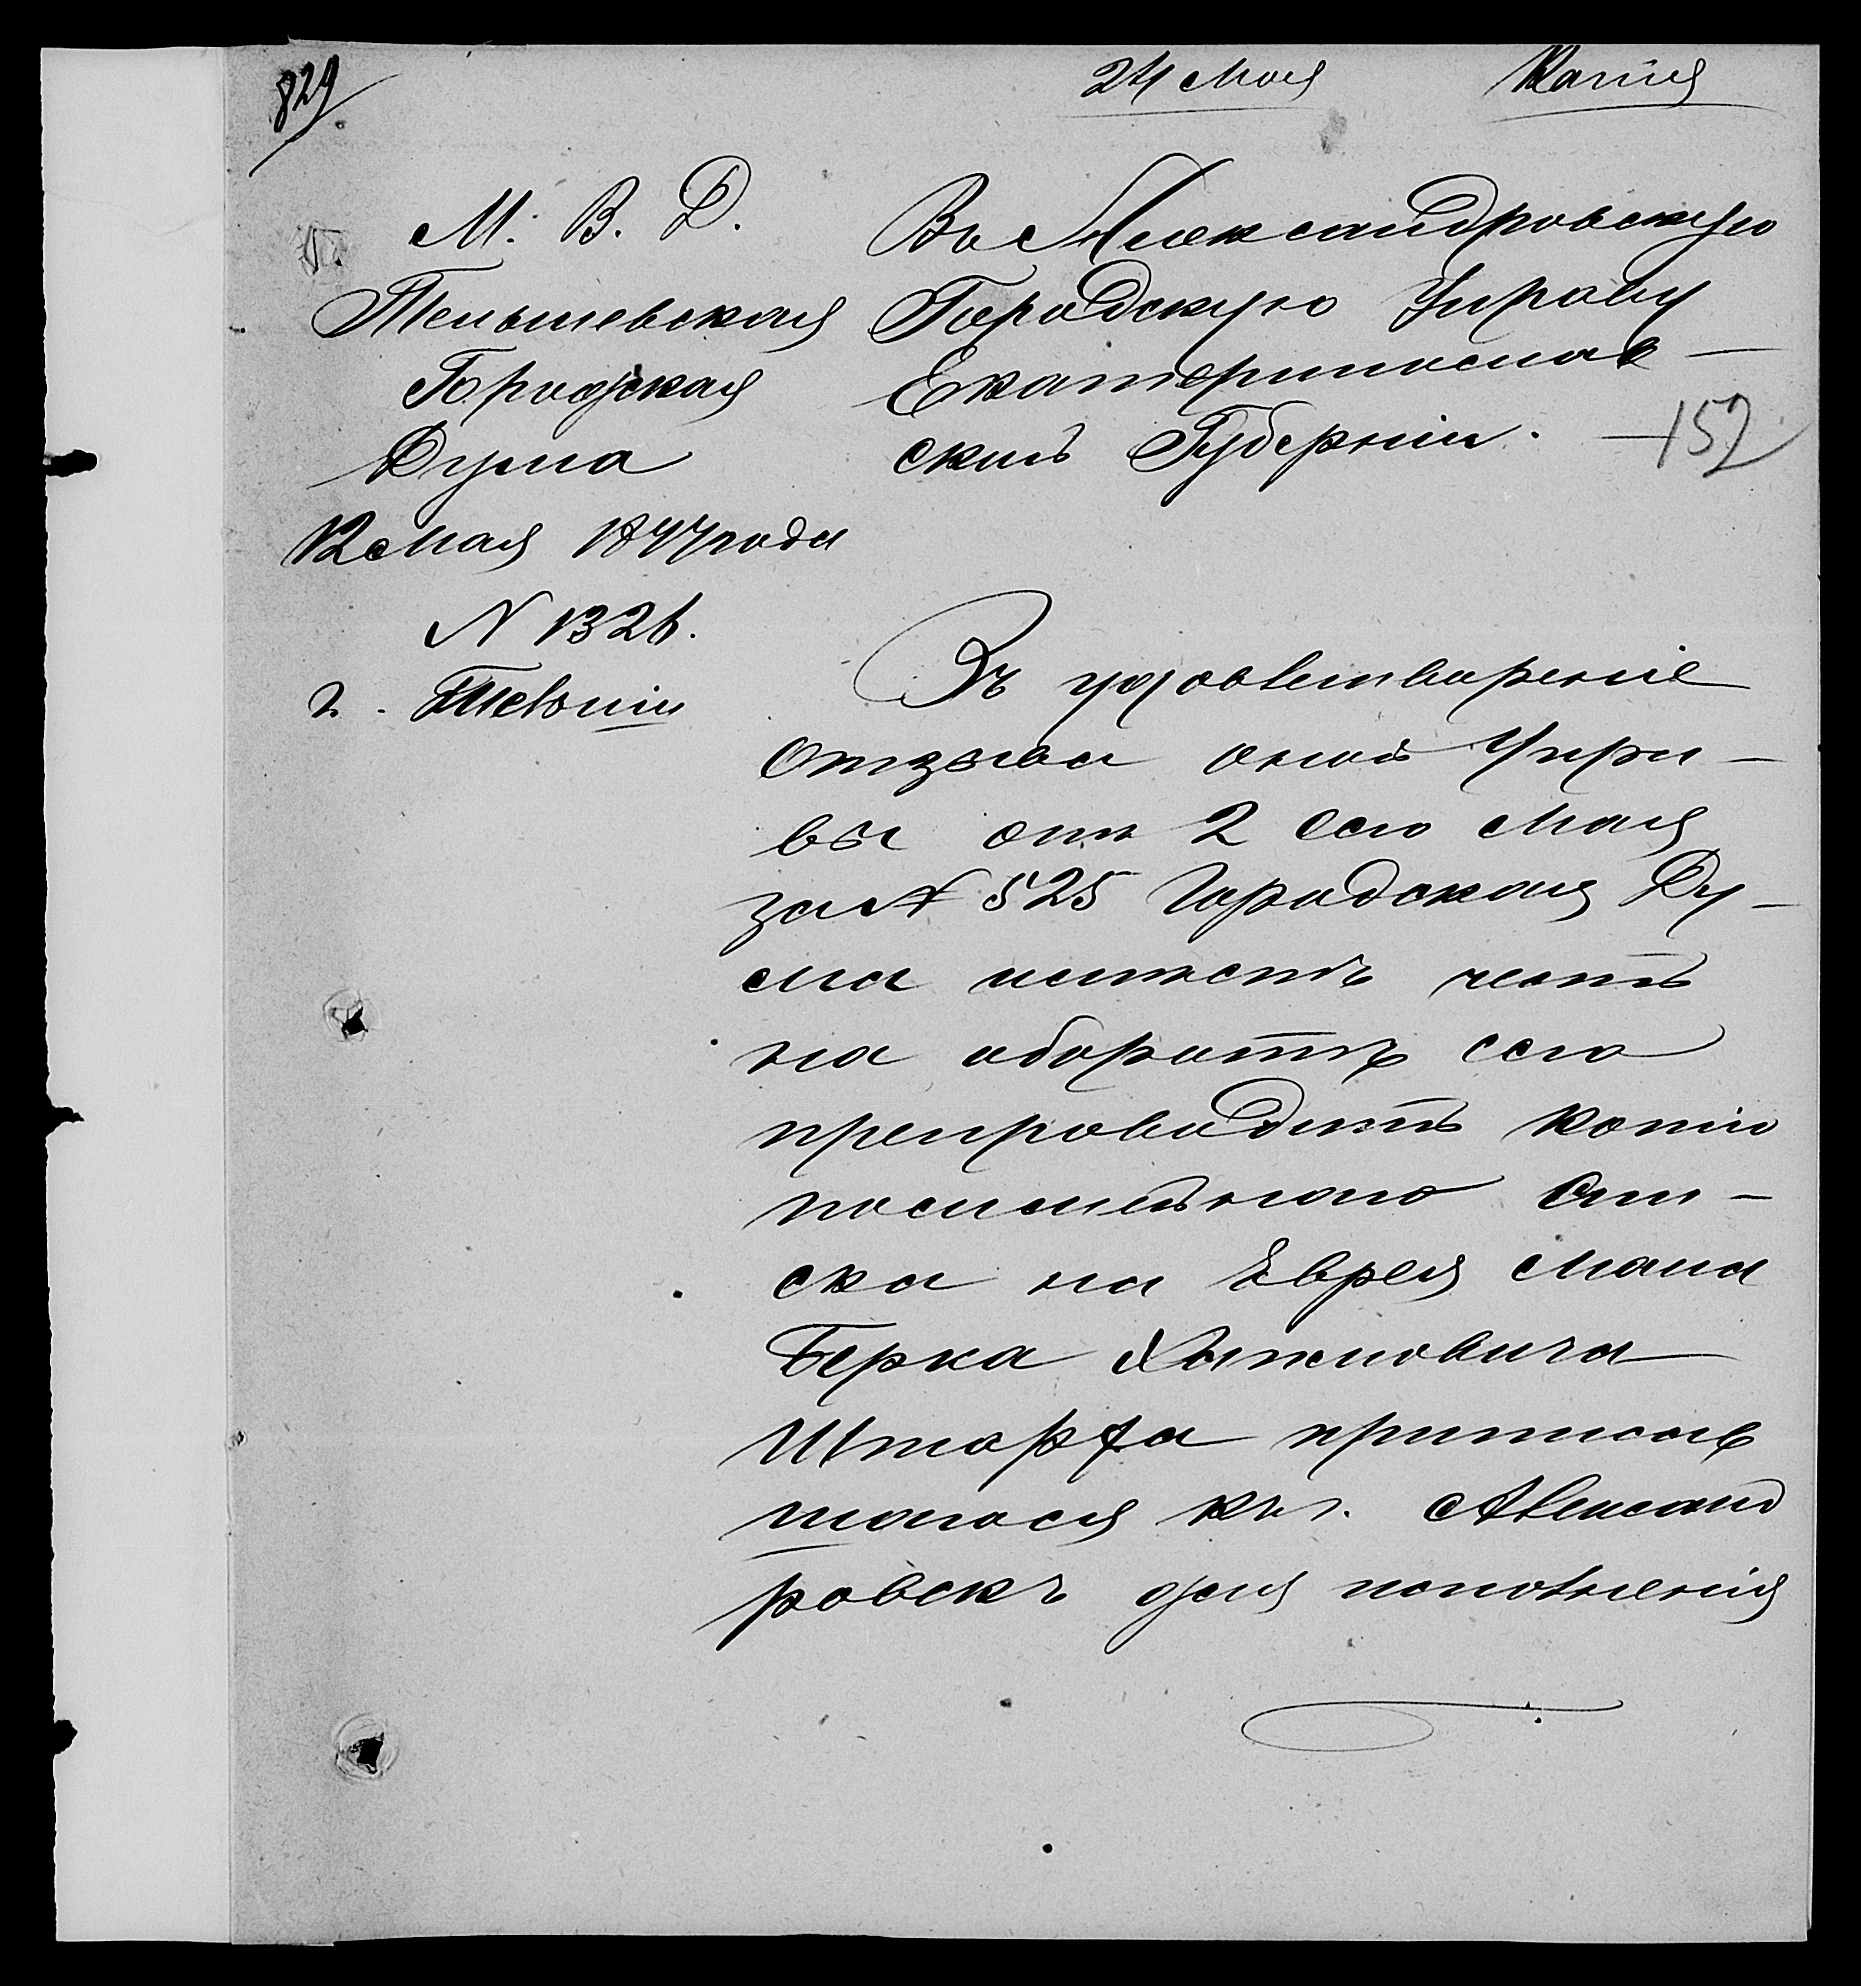 829
24 Мая Копія
М. В. Д.
Тельшевская
Городская
Дума
12 Мая 1877 года
N 1326.
г. Тельши
Въ Александровскую
Городскую Управу
Екатеринослав-
ской Губерніи.
152
Въ удовлетвореніе
отзыва оной Упра-
вы отъ 2 сего Мая
за N 525 Городская Ду-
ма имѣетъ честь
на оборотѣ сего
препроводить копію
посемейнаго спи-
ска на Еврея
Берка
Шторфа приписав
шагося къ г. Александ
ровскъ для исполненія